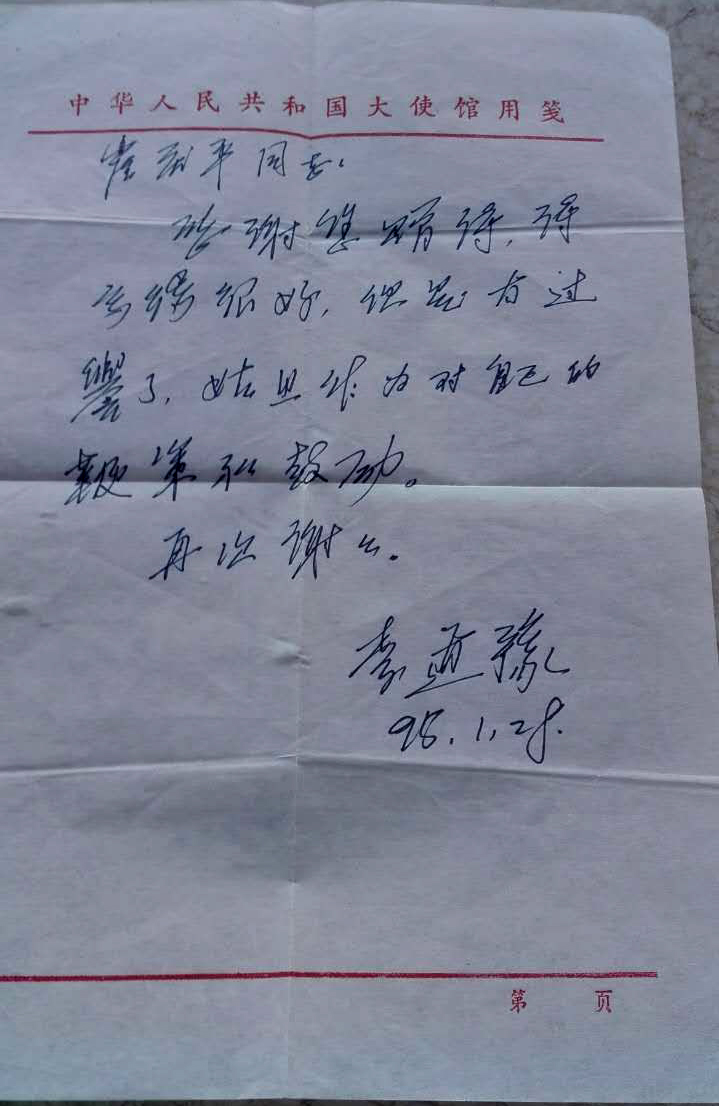 中华人民共和国大使馆用笺
崔 平同志:
感谢您赠诗,诗
写得很好,但是有过
誉了,姑且作为对自己的
鞭策和鼓励。
再次谢谢。
李道豫
95.1.28.
第 页